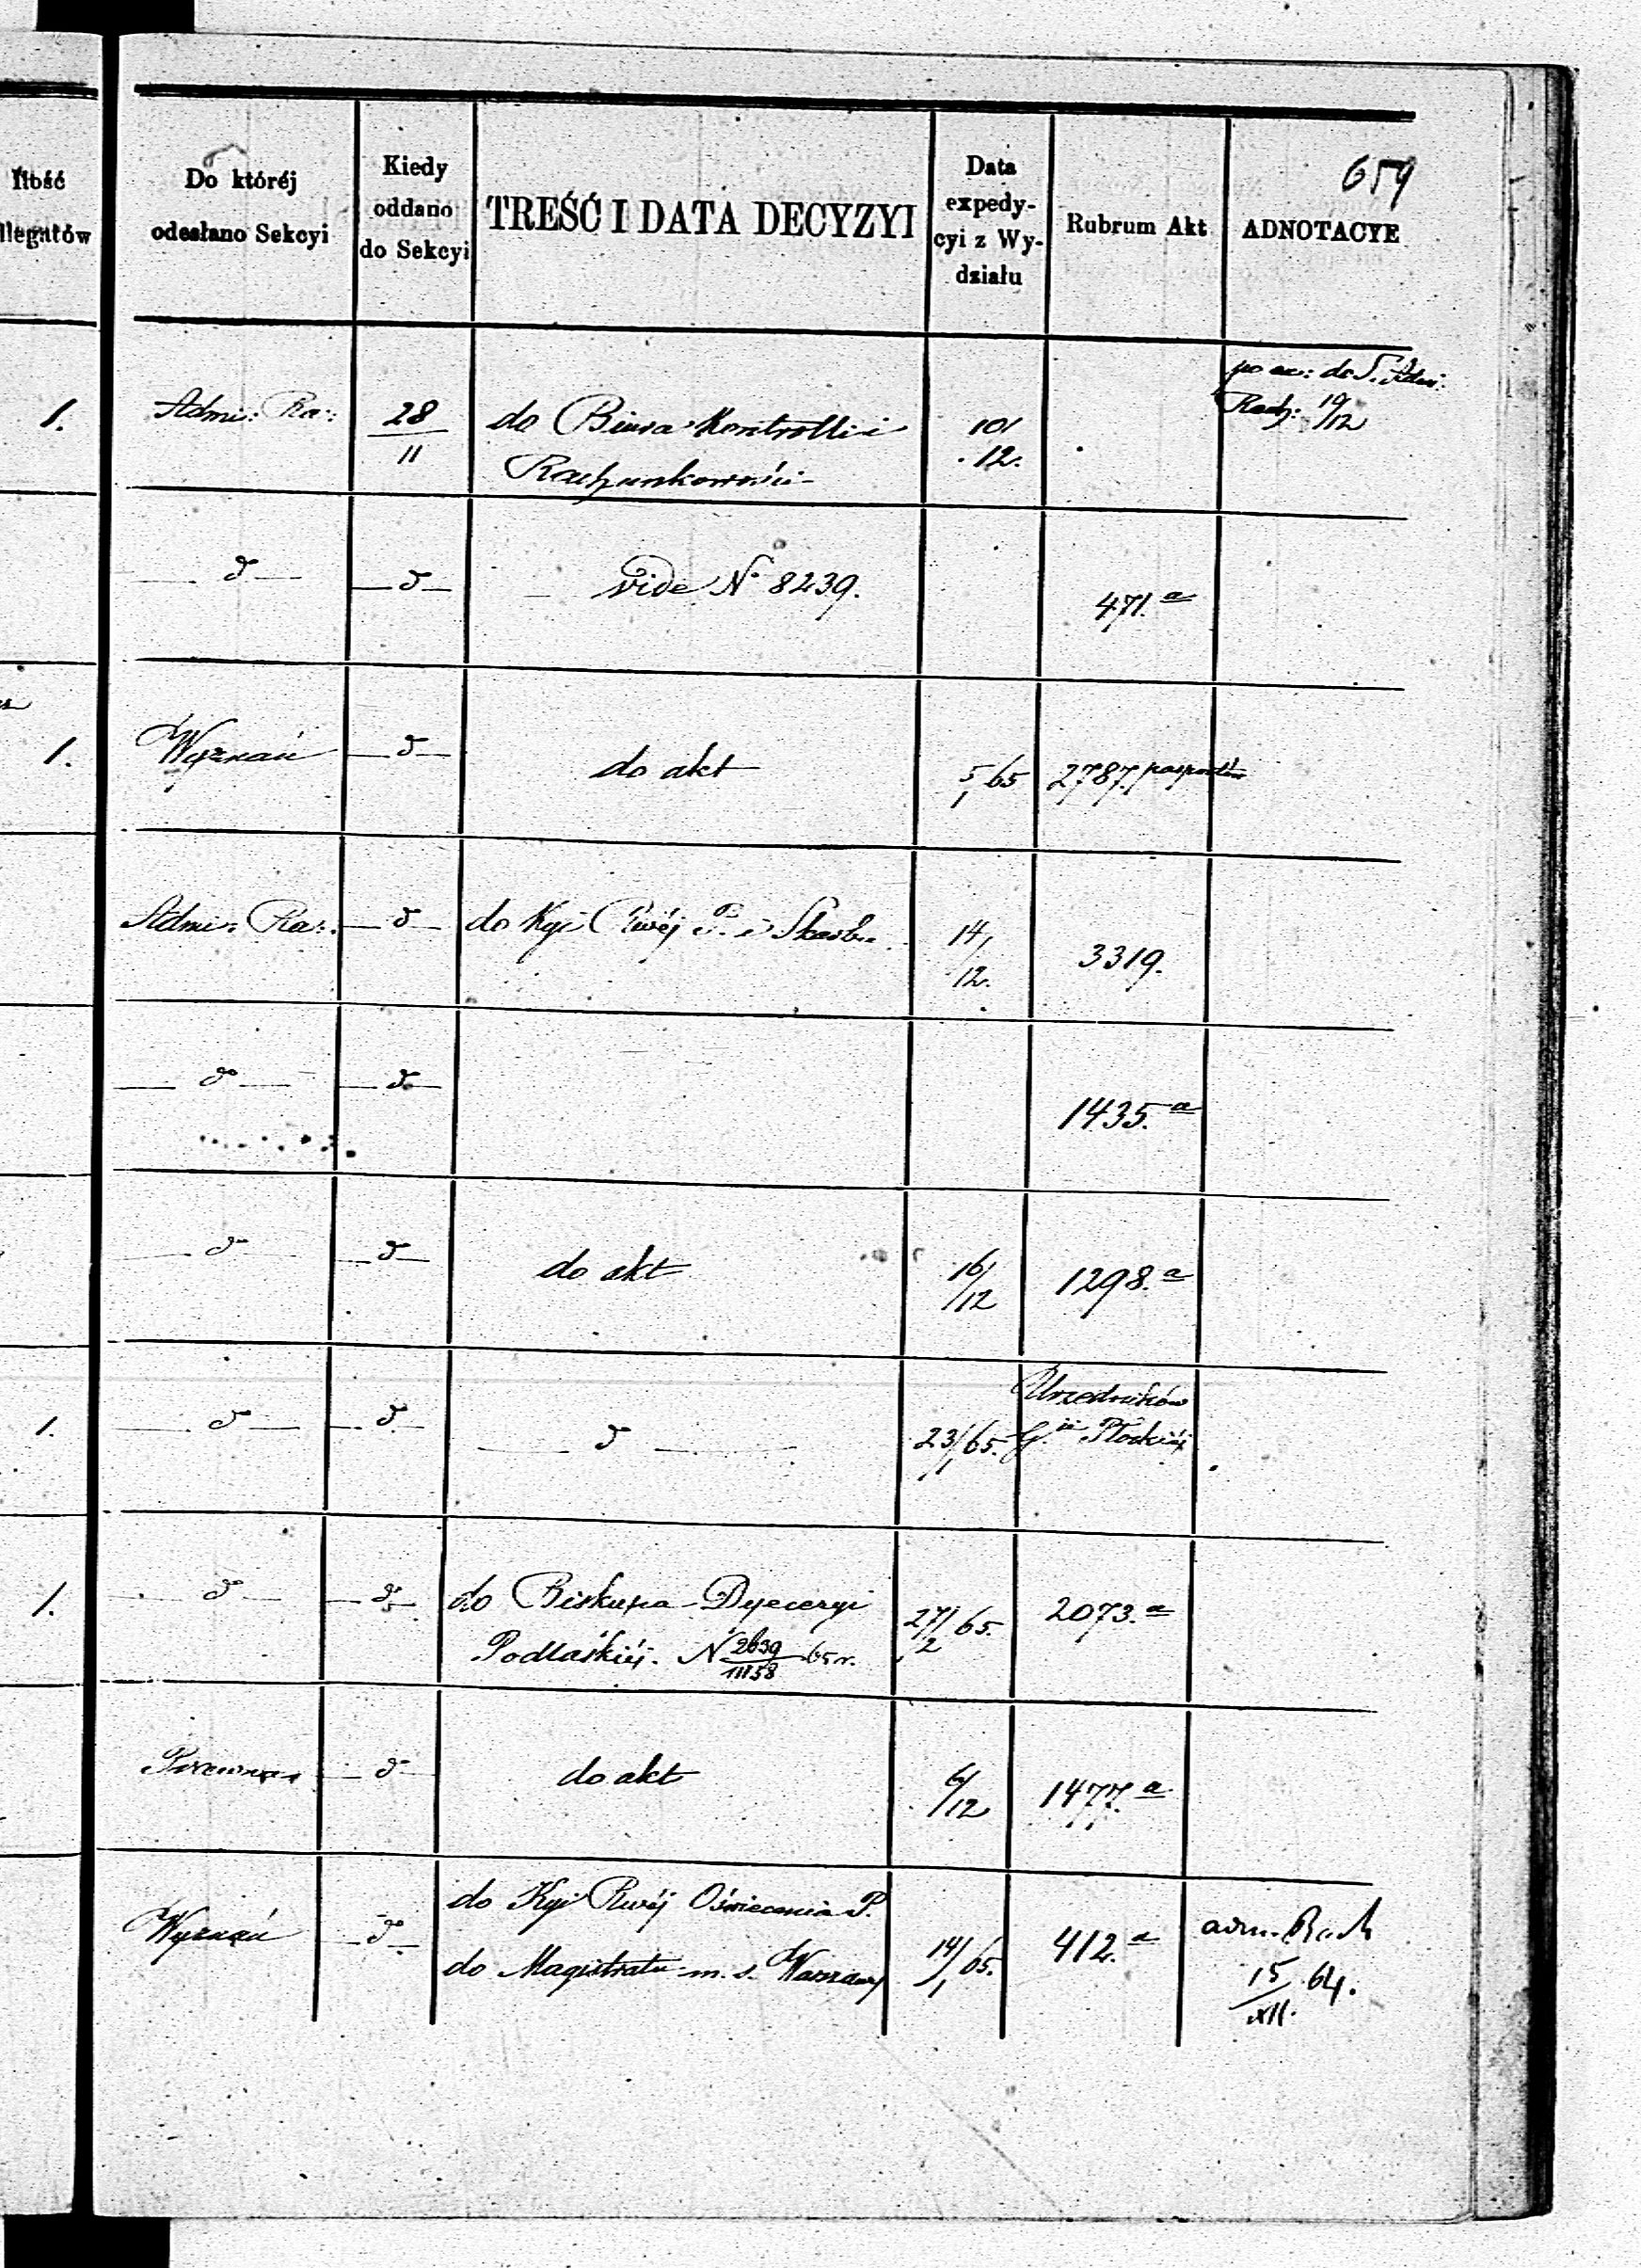 659
Ilość
llegatów
Do któréj
odesłano Sekcyi
Kiedy
oddano
do Sekcyi
TREŚĆ I DATA DECYZYI
Data
expedy-
cyi z Wy-
działu
Rubrum Akt
ADNOTACYE
1. Admi: Ra: 28/11 do Biura Kontrolli i 10/12.
Rachunkowości
Rach: 19/12
d d vide No 8239. 471.a
1. Wyznań d do akt 5/1 65 2787. paszportów
Admi: Ra: d do Kyi Rwéj P. i Skarbu 14/12. 3319.
d d 1435.a
d d do akt 16/12 1298.a
1. d d d 23/1 65. Urzedników
G. Płockiéj
1. d d do Biskupa Dyecezyi 27/2 65. 2073.a
Podlaskiéj. N 2639/11158 65 r.
d do akt 6/12 1477.a
Wyznań d do Kyi Rwéj Oświecenia P. 14/1 65. 412.a adm. Rach
do Magistratu m. s. Warszawy 15/XII. 64.